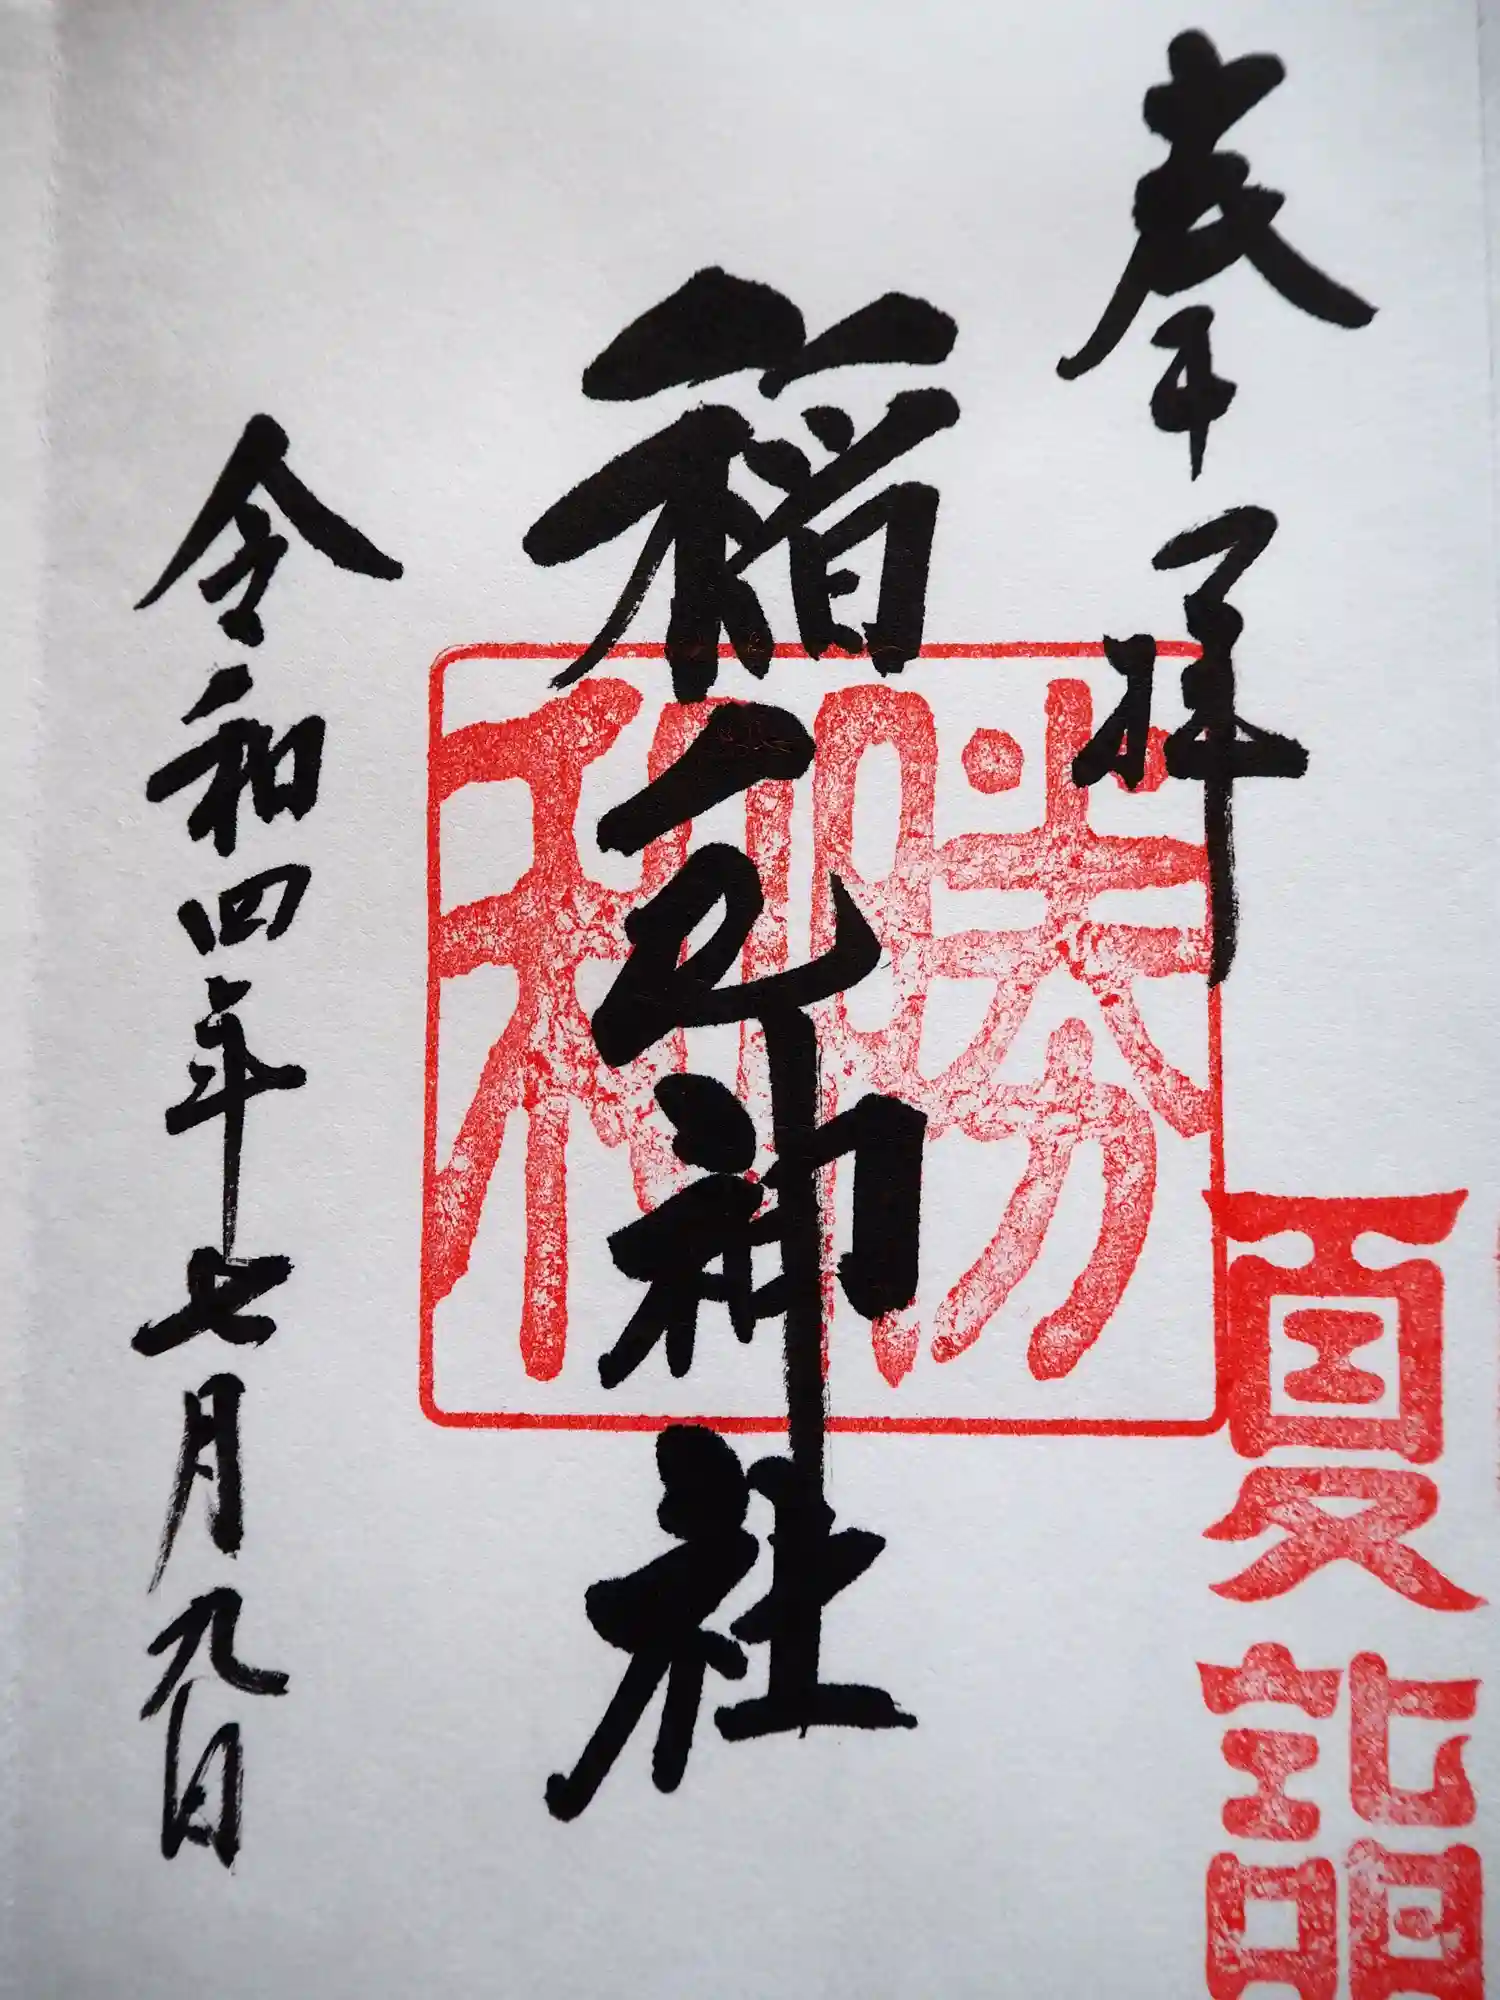 奉拝
夏詣
勝
稲毛神社
令和四年七月九日